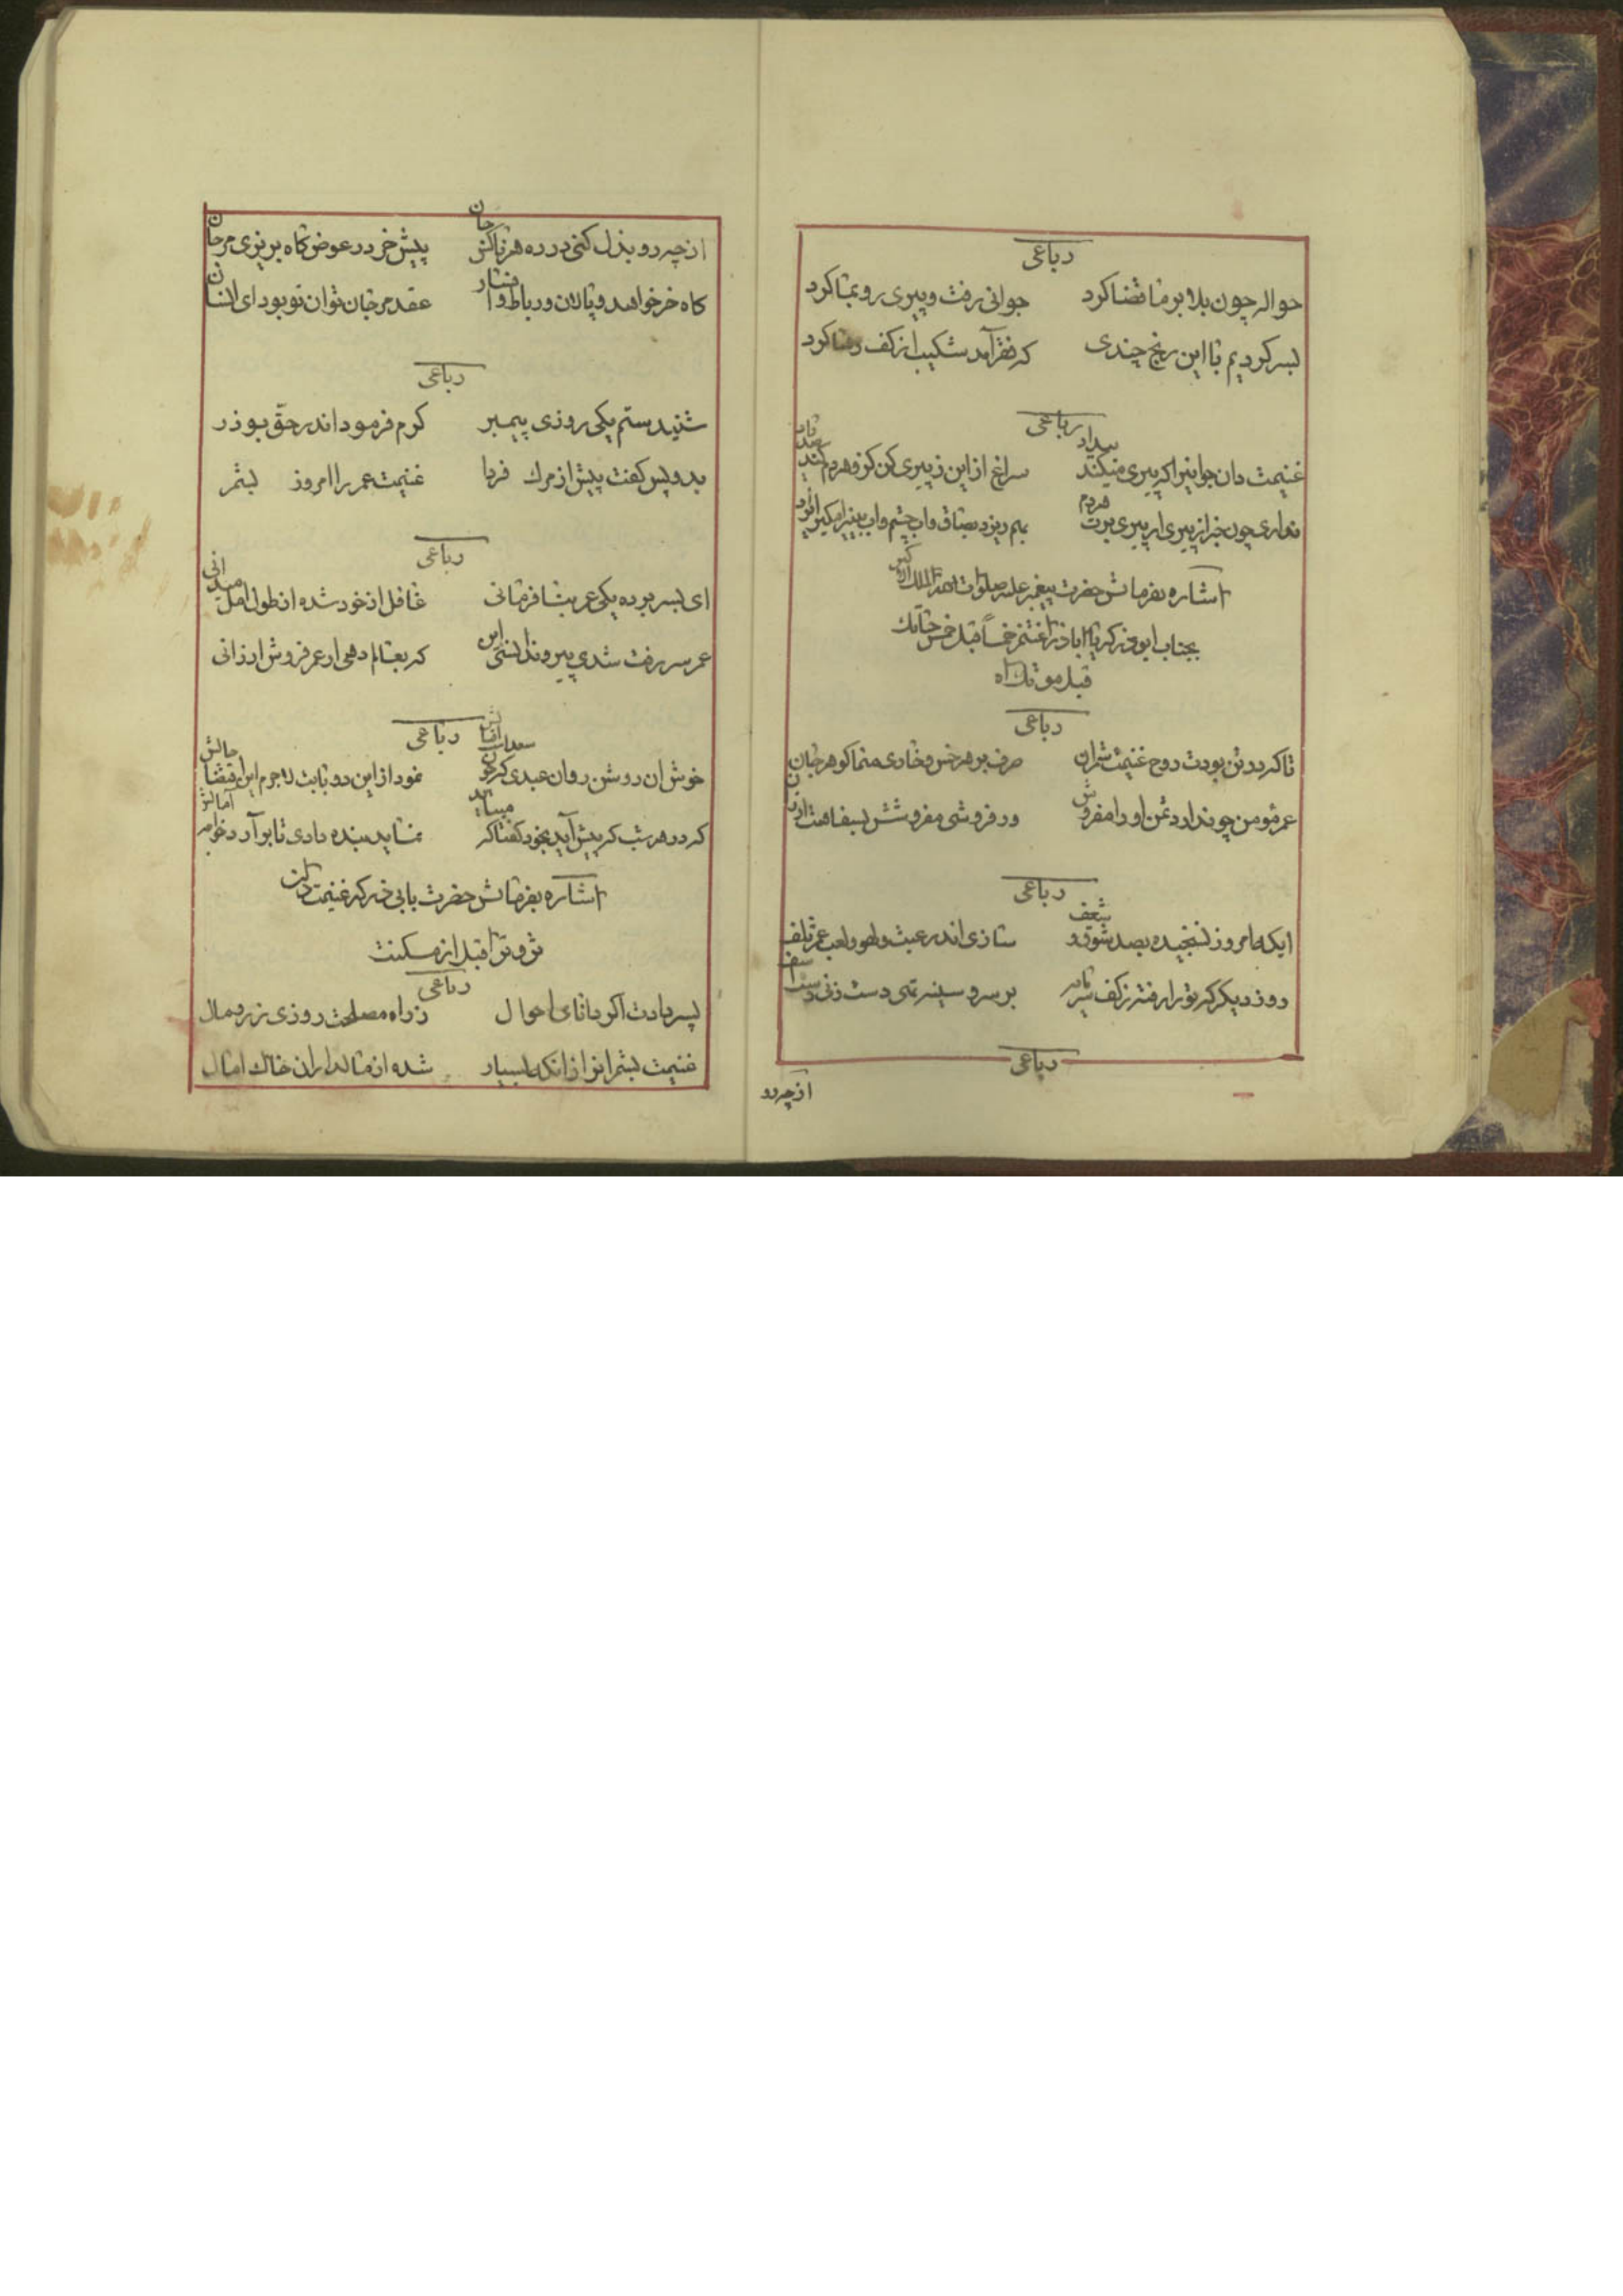 رباعی
حواله چون بلا بر ما قضا کرد جوانی رفت و پیری رو بما کرد
بسر کردیم با این رنج چندی که فقر آمد شکیب از کف رها کرد
رباعی
غنیمت دان جوانیرا که پیری میکند سراغ از این ز پیری کن کز و هردم
نداری چون خبر از پیری ار پیری برت هردم بهم ریزد بصاق و اب چشم و اب بینیرا
اشاره بفرمایش حضرت پیغمبر علیه صلوات الله الملک الاکبر
بجناب ابوذر که یا اباذر اغتنم خمساً قبل خمس حیاتک
قبل موتک اه
رباعی
تا که در تن بودت روح غنیمت شمر ان صرف بر هر خس و خاری منما کوهر جان
عمر مؤمن چو ندارد ثمن او را مفروش ور فروشی مفروشش بسفاهت ارزان
رباعی
ایکه امروز نسنجیده بصد شوق و شعف سازی اندر عبث و لهو و لعب عمر تلف
روز دیکر که تو را رفته ز کف سرمایه بر سر و سینه همی دست زنی
رباعی
از چه رو
از چه رو بذل کنی در ره هر ناکس جان پیش خر در عوض کاه بریزی مرجان
کاه خر خواهد و پالان و رباط و افسار عقد مرجان توان تو بود ای انسان
رباعی
شنیدستم یکی روزی پیمبر کرم فرمود اندر حق بوذر
بدو پس کفت پیش از مرك فردا غنیمت عمر را امروز بشمر
رباعی
ای بسر برده یکی عمر بنافرمانی غافل از خود شده از طول امل میدانی
عمر سر رفت شدی پیر و ندانستی این که بعالم دهی ار عمر فروش ارزانی
رباعی
خوش ان روشن روان عبدی که چون نمود از این دو بابت لاجرم این اقتضا حالش
که در هر شب که پیش آید بخود کفتا که میباید نماید بنده دادی تا برآرد خواجه آمالش
اشاره بفرمایش حضرت بابی ذر که غنیمت دان
ثروترا قبل از مسکنت
رباعی
پسر دادت اکر دانای احوال ز راه مصلحت روزی زر و مال
غنیمت بشمر انرا زانکه بسیار شده از مالداران خاك امثال